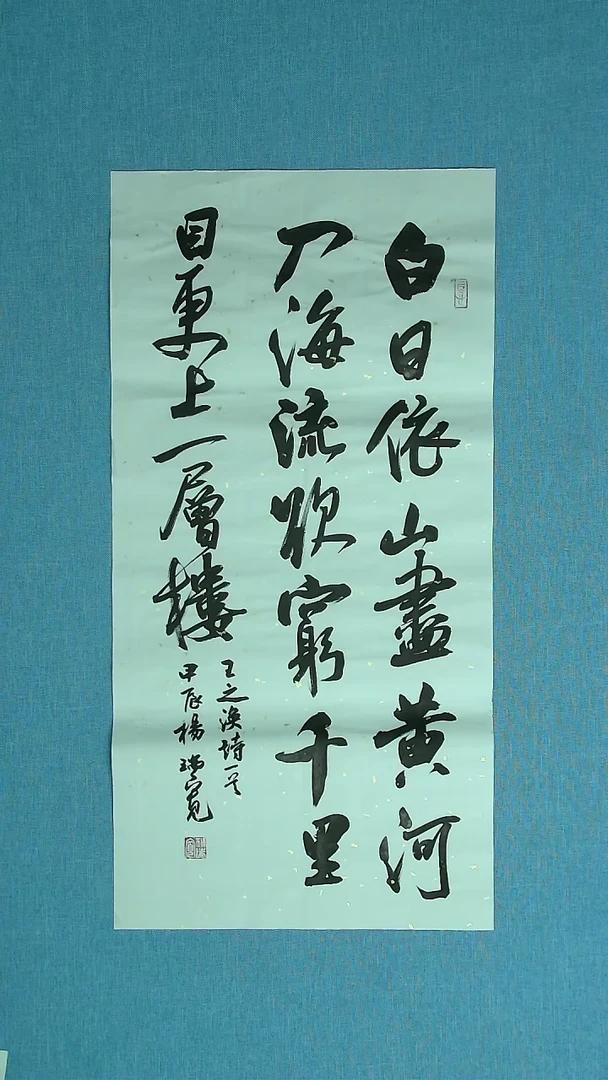 白日依山盡黄河
入海流欲窮千里
目更上一層樓
王之渙詩一首
甲辰楊瑞寬